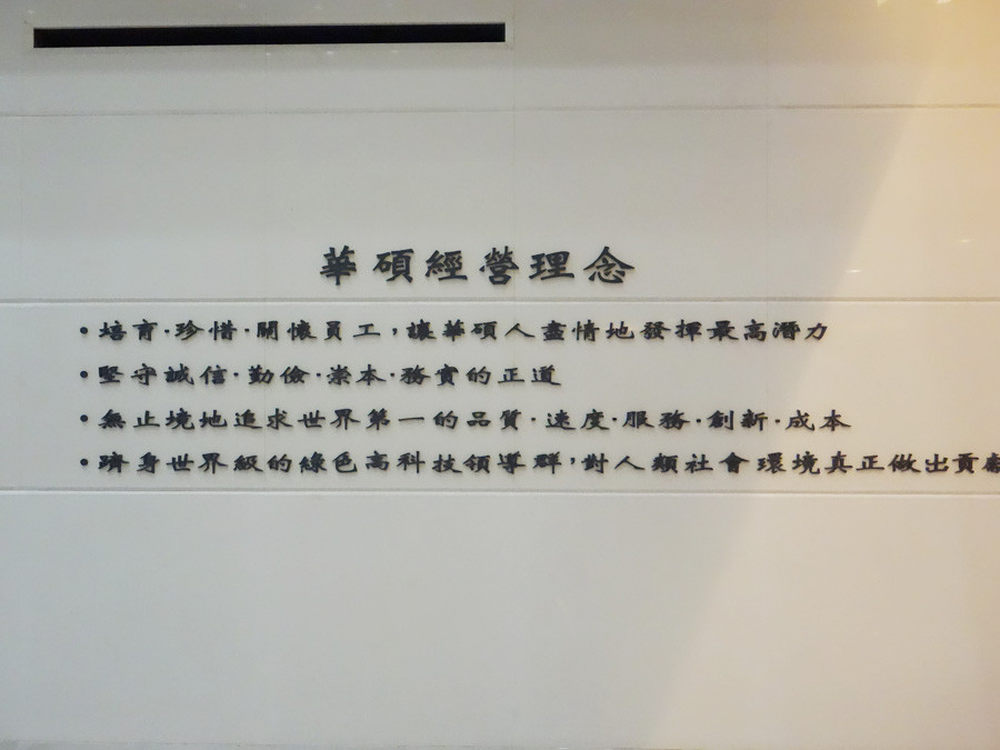 華碩經營理念
•培育·珍惜·關懷員工，讓華碩人盡情地發揮最高潛力
•堅守誠信·勤儉·崇本·務實的正道
•無止境地追求世界第一的品質·速度·服務·創新·成本
•躋身世界級的綠色高科技領導群，對人類社會環境真正做出貢獻